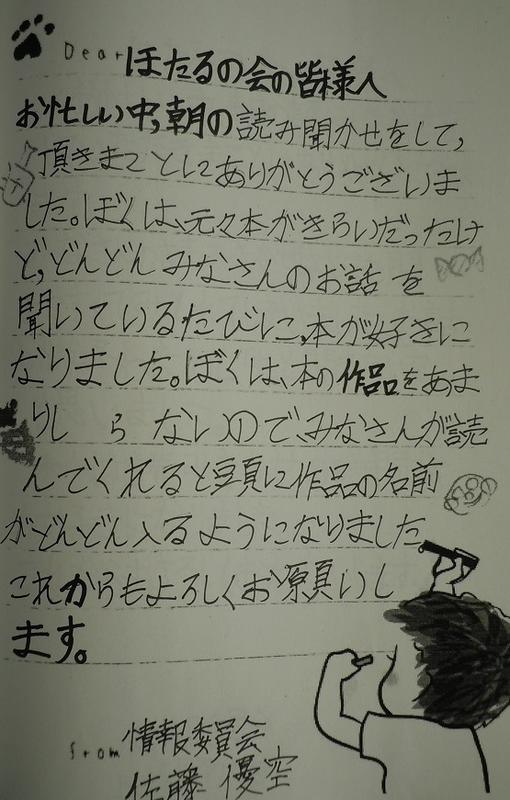 Dear ほたるの会の皆様へ
お忙しい中,朝の読み聞かせをして,
頂きまことしにありがとうございま
した。ぼくは、元々本がきらいだったけ
ど,どんどんみなさんのお話を
聞いているたびに、本が好きに
なりました。ぼくは、本の作品をあま
りしらないので、みなさんが読
んでくれると頭に作品の名前
がどんどん入るようになりました
これからもよろしくお願いし
ます。
from 情報委員会
佐藤 優空